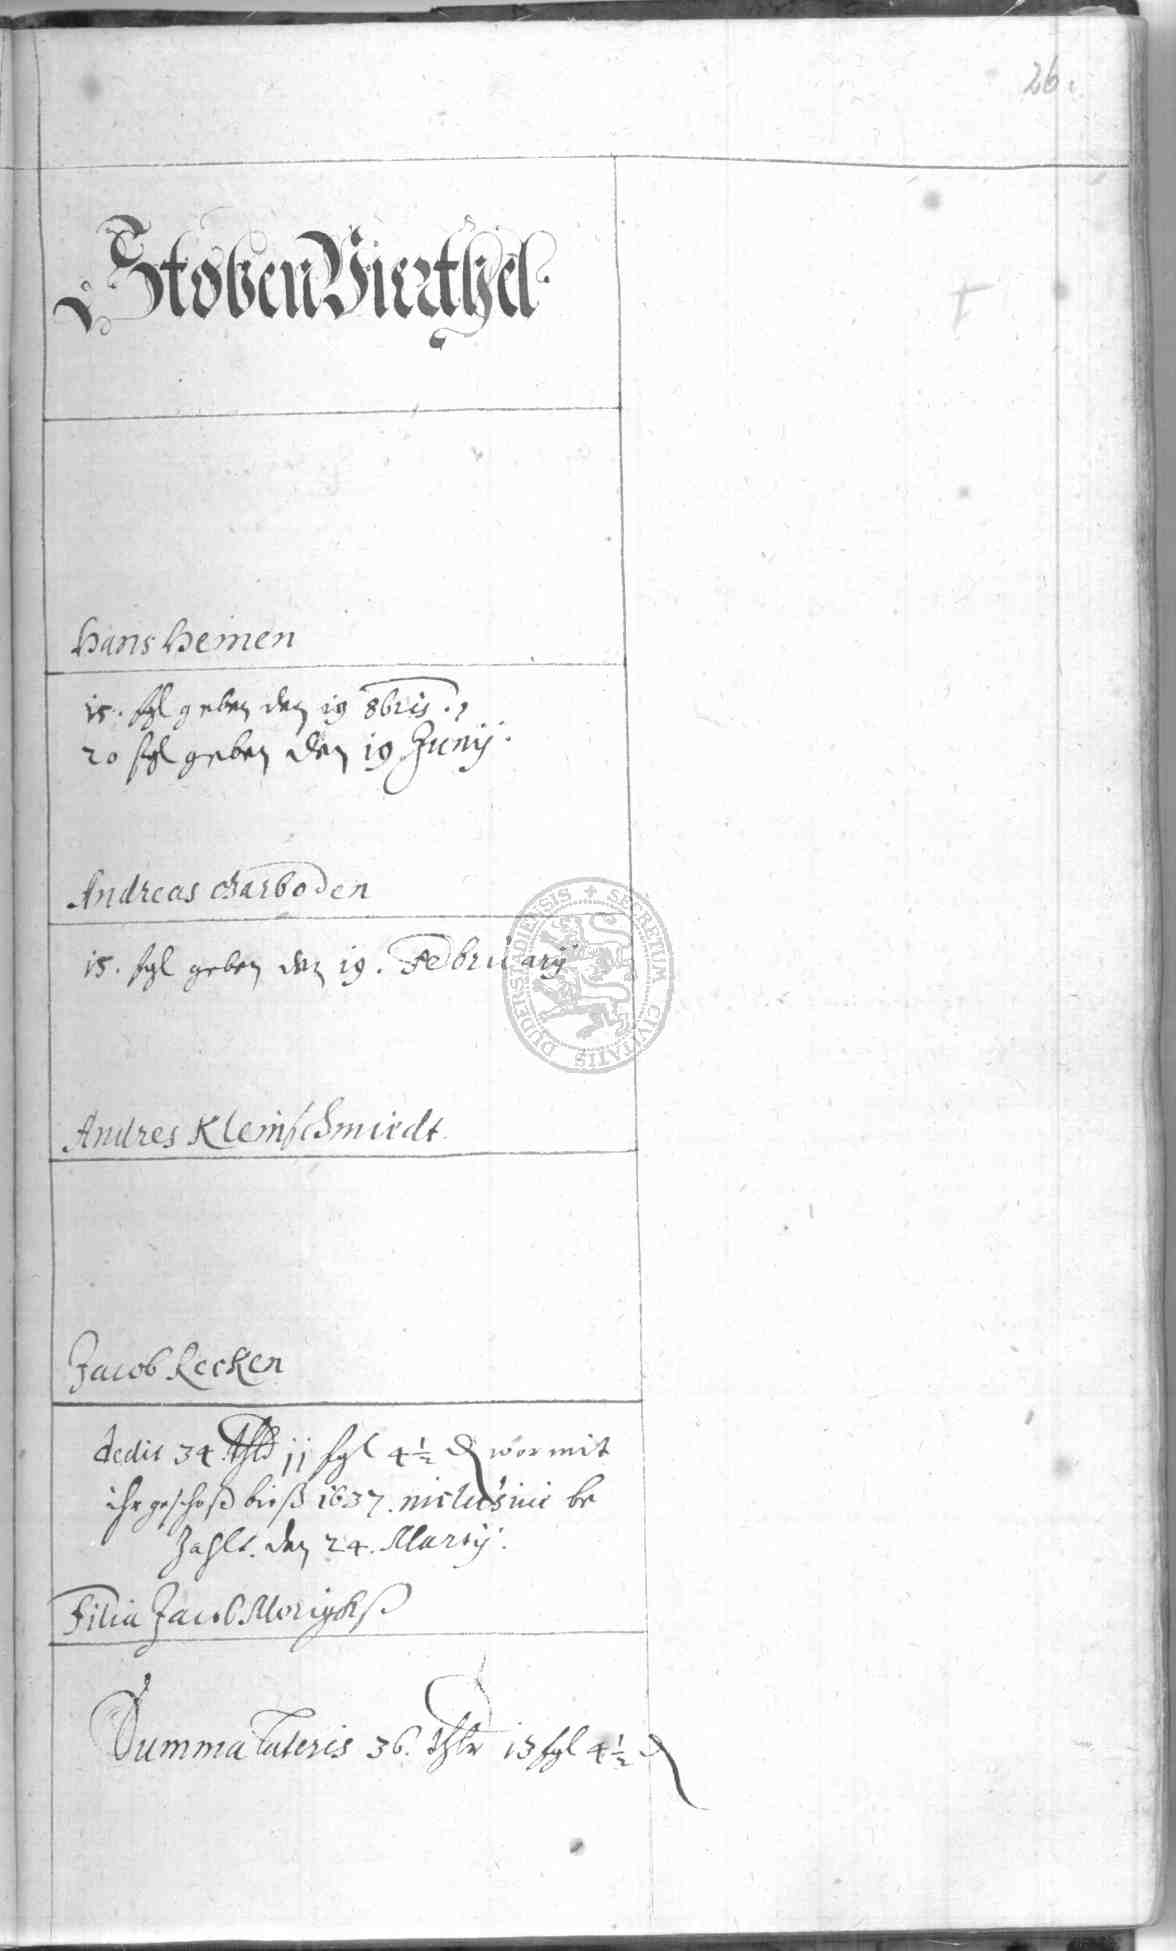 26.
Stoben Vierthel.
Hans Heinen
15. fgl geben den 19 8bris.
20 fgl geben den 19 Junij.
Andreas Garboden
15. fgl geben den 19. Februarij
Andres Kleinschmiedt.
Jacob Recken
dedit 34 thlr 11 fgl 4½ ₰ wormit
ihr geschoß bieß 1637. inclusive be
zahlt. den 24. Martij.
Filia Jacob
Summa lateris 36. thlr 13 fgl 4½ ₰
SECRETUM CIVITATIS DUDERSTADIENSIS